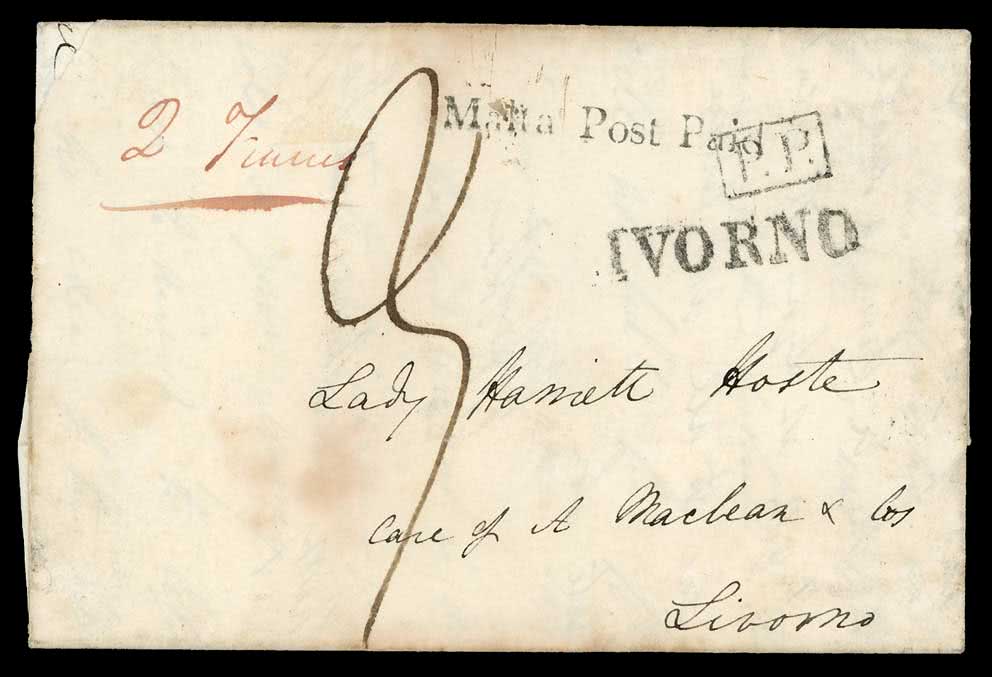 2 Francs
Malta Post Paid
P.P.
IVORNO
Lady Harriett Hoste
Care of A Maclean & Cos
Livorno